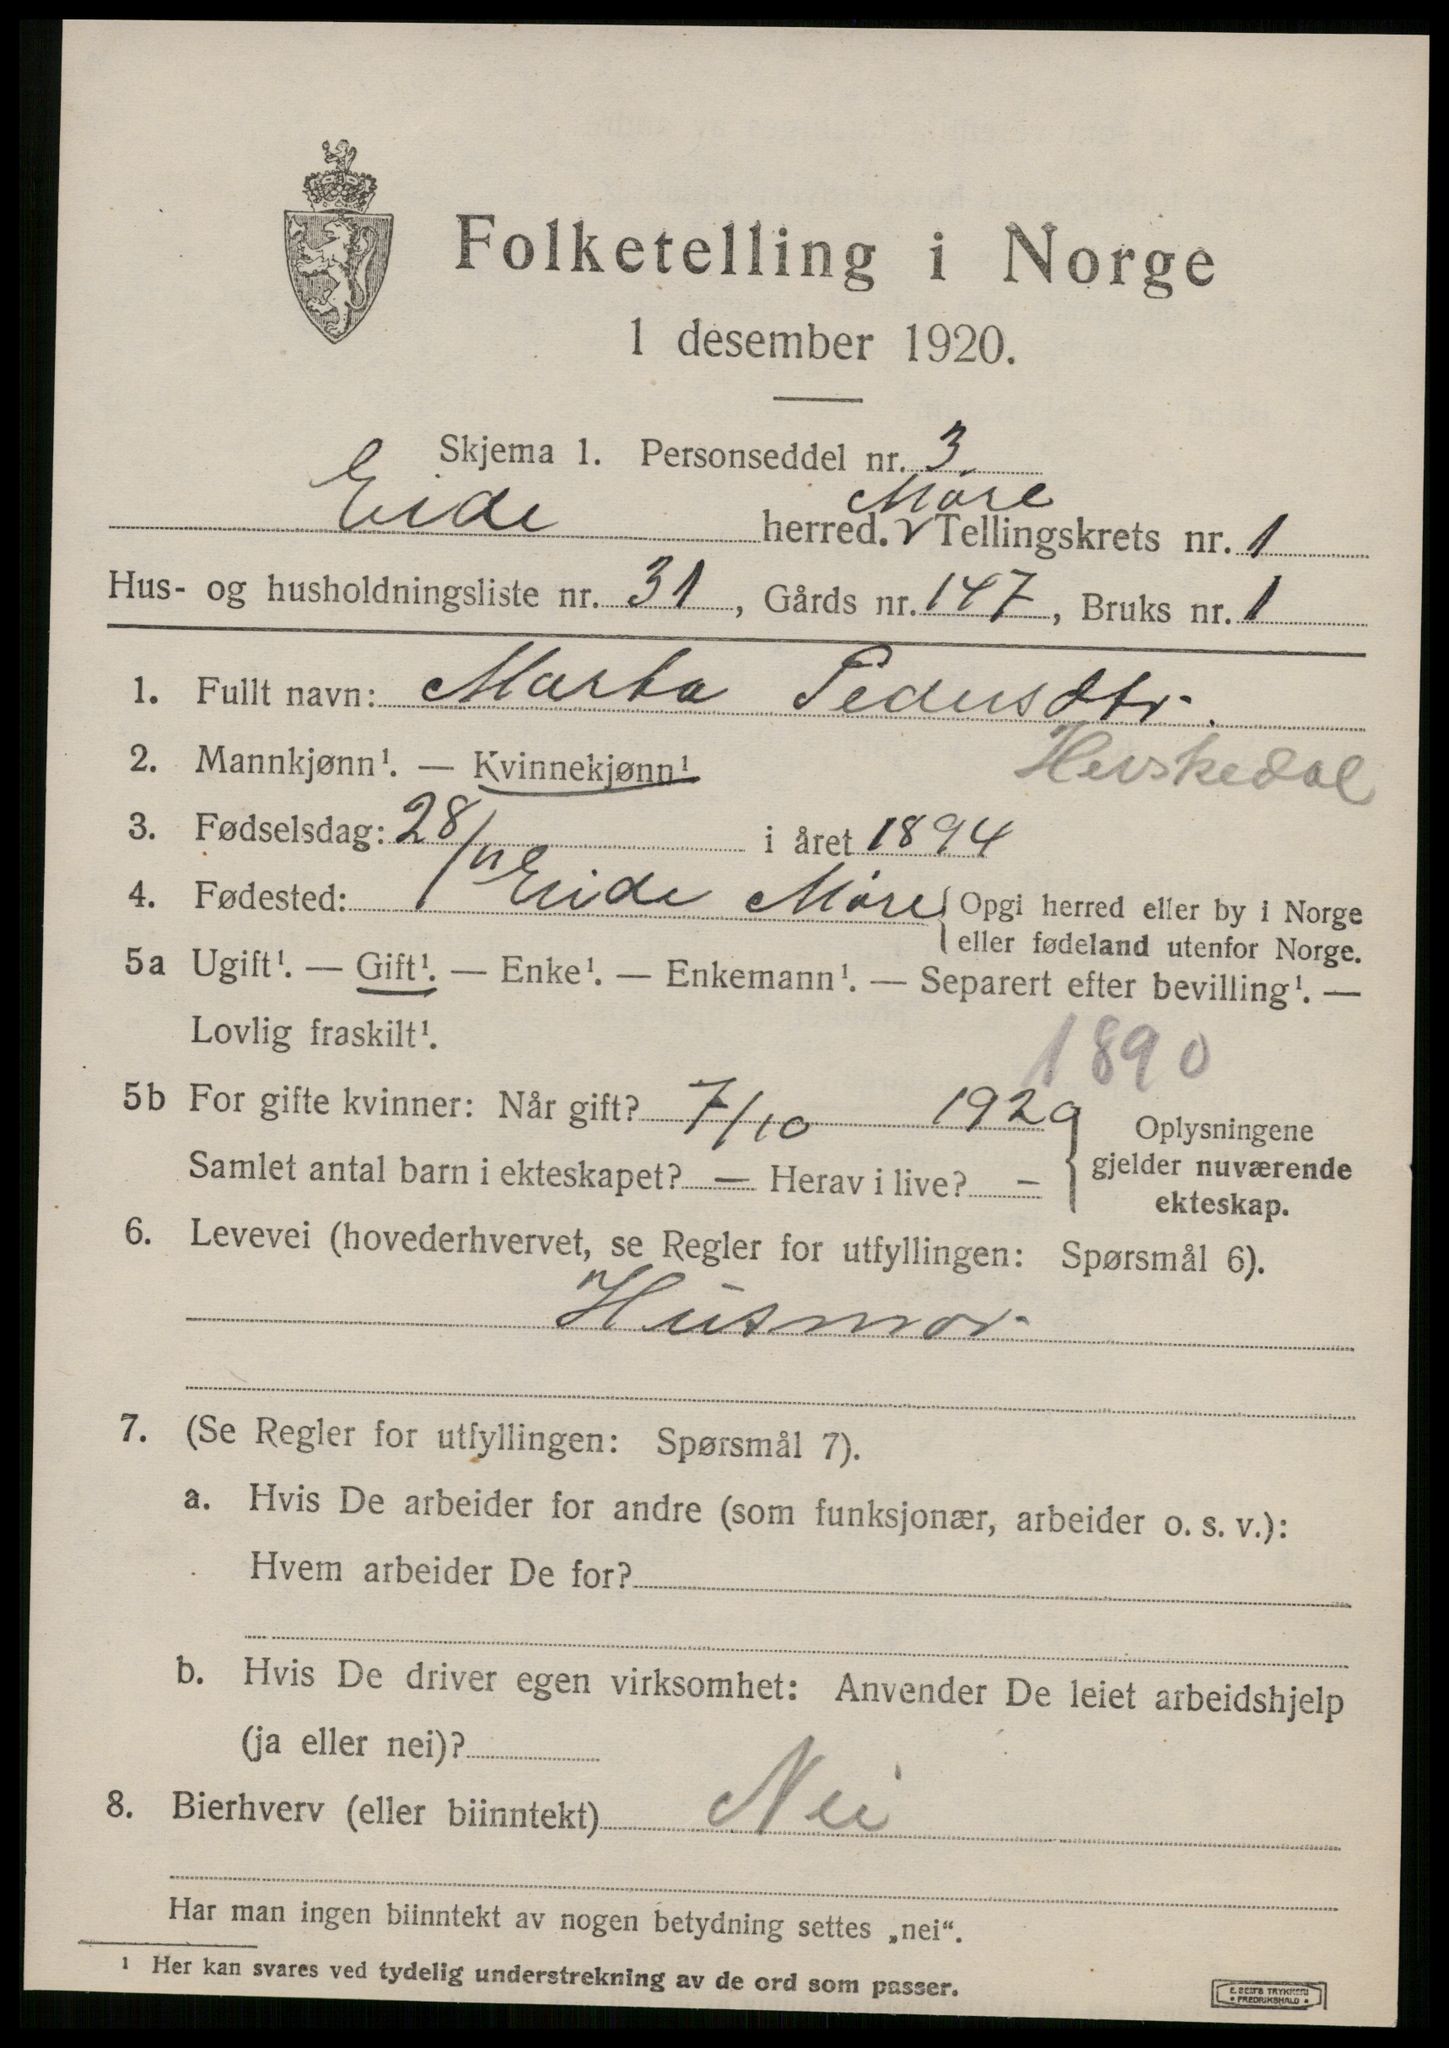 Folketelling i Norge
1 desember 1920.
Skjema 1. Personseddel nr. 3
Eide herred. Möre Tellingskrets nr. 1
Hus- og husholdningsliste nr. 31, Gårds nr. 147, Bruks nr. 1
1. Fullt navn: Marta Pedersdtr.
2. Mannkjønn¹. — Kvinnekjønn¹ Herskedal
3. Fødselsdag: 28/11 i året 1894
4. Fødested: Eide Möre { Opgi herred eller by i Norge
eller fødeland utenfor Norge.
5a Ugift¹. — Gift¹. — Enke¹. — Enkemann¹. — Separert efter bevilling¹. —
Lovlig fraskilt¹.
1890
5b For gifte kvinner: Når gift? 7/10 1920
Samlet antal barn i ekteskapet? — Herav i live? —
Oplysningene
gjelder nuværende
ekteskap.
6. Levevei (hovederhvervet, se Regler for utfyllingen: Spørsmål 6).
Husmor
7. (Se Regler for utfyllingen: Spørsmål 7).
a. Hvis De arbeider for andre (som funksjonær, arbeider o. s. v.):
Hvem arbeider De for?
b. Hvis De driver egen virksomhet: Anvender De leiet arbeidshjelp
(ja eller nei)?
8. Bierhverv (eller biinntekt) Nei
Har man ingen biinntekt av nogen betydning settes „nei“.
¹ Her kan svares ved tydelig understrekning av de ord som passer.
TRYKKERI
• FREDRIKSHALD •